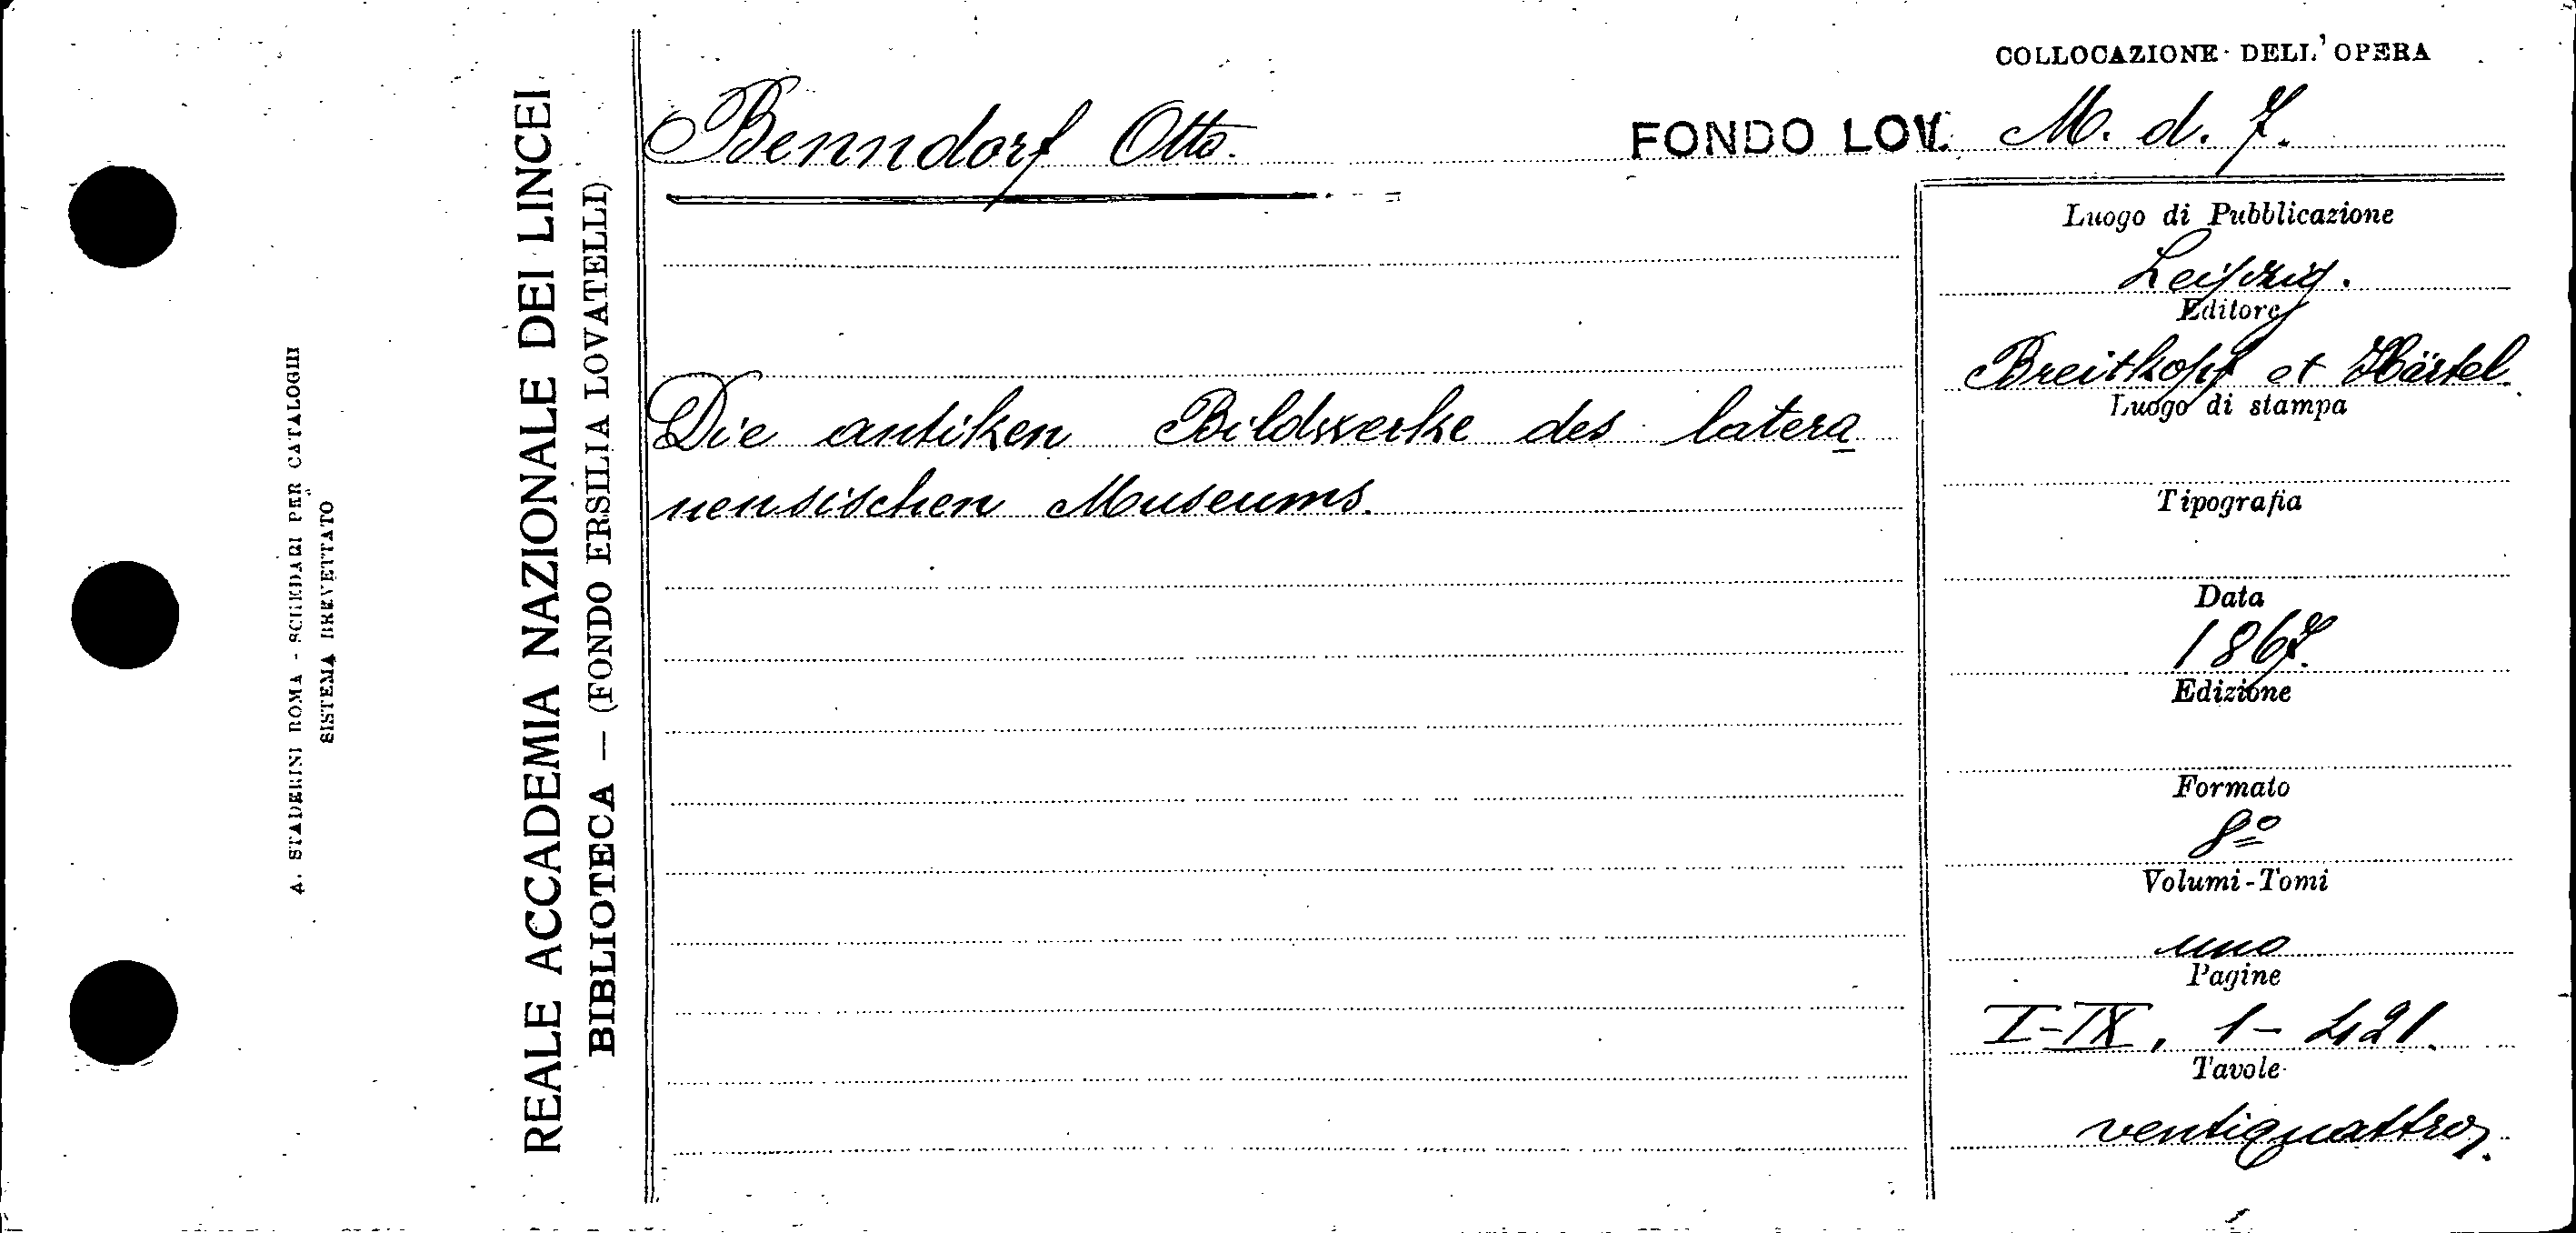 COLLOCAZIONE DELL'OPERA
Benndorf Otto.
FONDO LOV. M. d. 7.
Die antiken Bildwerke des latera
nensischen Museums.
Luogo di Pubblicazione
Leipzig.
Editore
Breitkopf et Härtel.
Luogo di stampa
Tipografia
Data
1867.
Edizione
Formato
8º
Volumi-Tomi
uno
Pagine
I-IX, 1-421.
Tavole
ventiquattro.
REALE ACCADEMIA NAZIONALE DEI LINCEI
BIBLIOTECA — (FONDO ERSILIA LOVATELLI)
A. STADERINI ROMA - SCHEDARI PER CATALOGHI
SISTEMA BREVETTATO